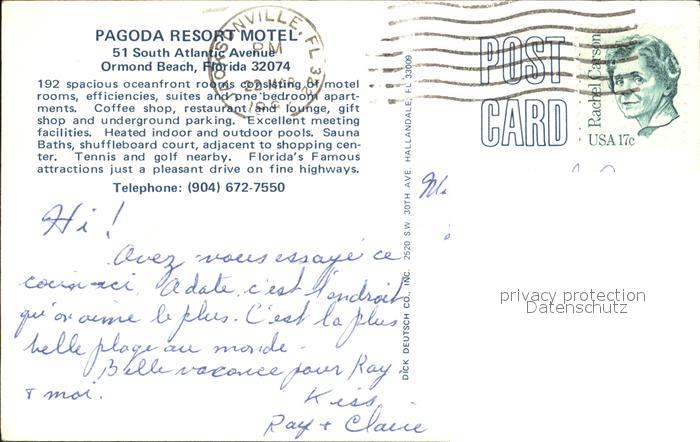 PAGODA RESORT MOTEL
51 South Atlantic Avenue
Ormond Beach, Florida 32074
192 spacious oceanfront rooms consisting of motel
rooms, efficiencies, suites and one bedroom apart-
ments. Coffee shop, restaurant and lounge, gift
shop and underground parking. Excellent meeting
facilities. Heated indoor and outdoor pools. Sauna
Baths, shuffleboard court, adjacent to shopping cen-
ter. Tennis and golf nearby. Florida's Famous
attractions just a pleasant drive on fine highways.
Telephone: (904) 672-7550
JACKSONVILLE, FL
PM
POST
CARD
Rachel Carson
USA 17c
DICK DEUTSCH CO., INC. 2520 S.W. 30TH AVE. HALLANDALE, FL 33009
Hi!
Avez vous essayé ce
coin-ci. A date c'est l'endroit
qu'on aime le plus. C'est la plus
belle plage au monde.
Belle vacance pour Ray
& moi.
Kiss
Ray + Claire
privacy protection
Datenschutz